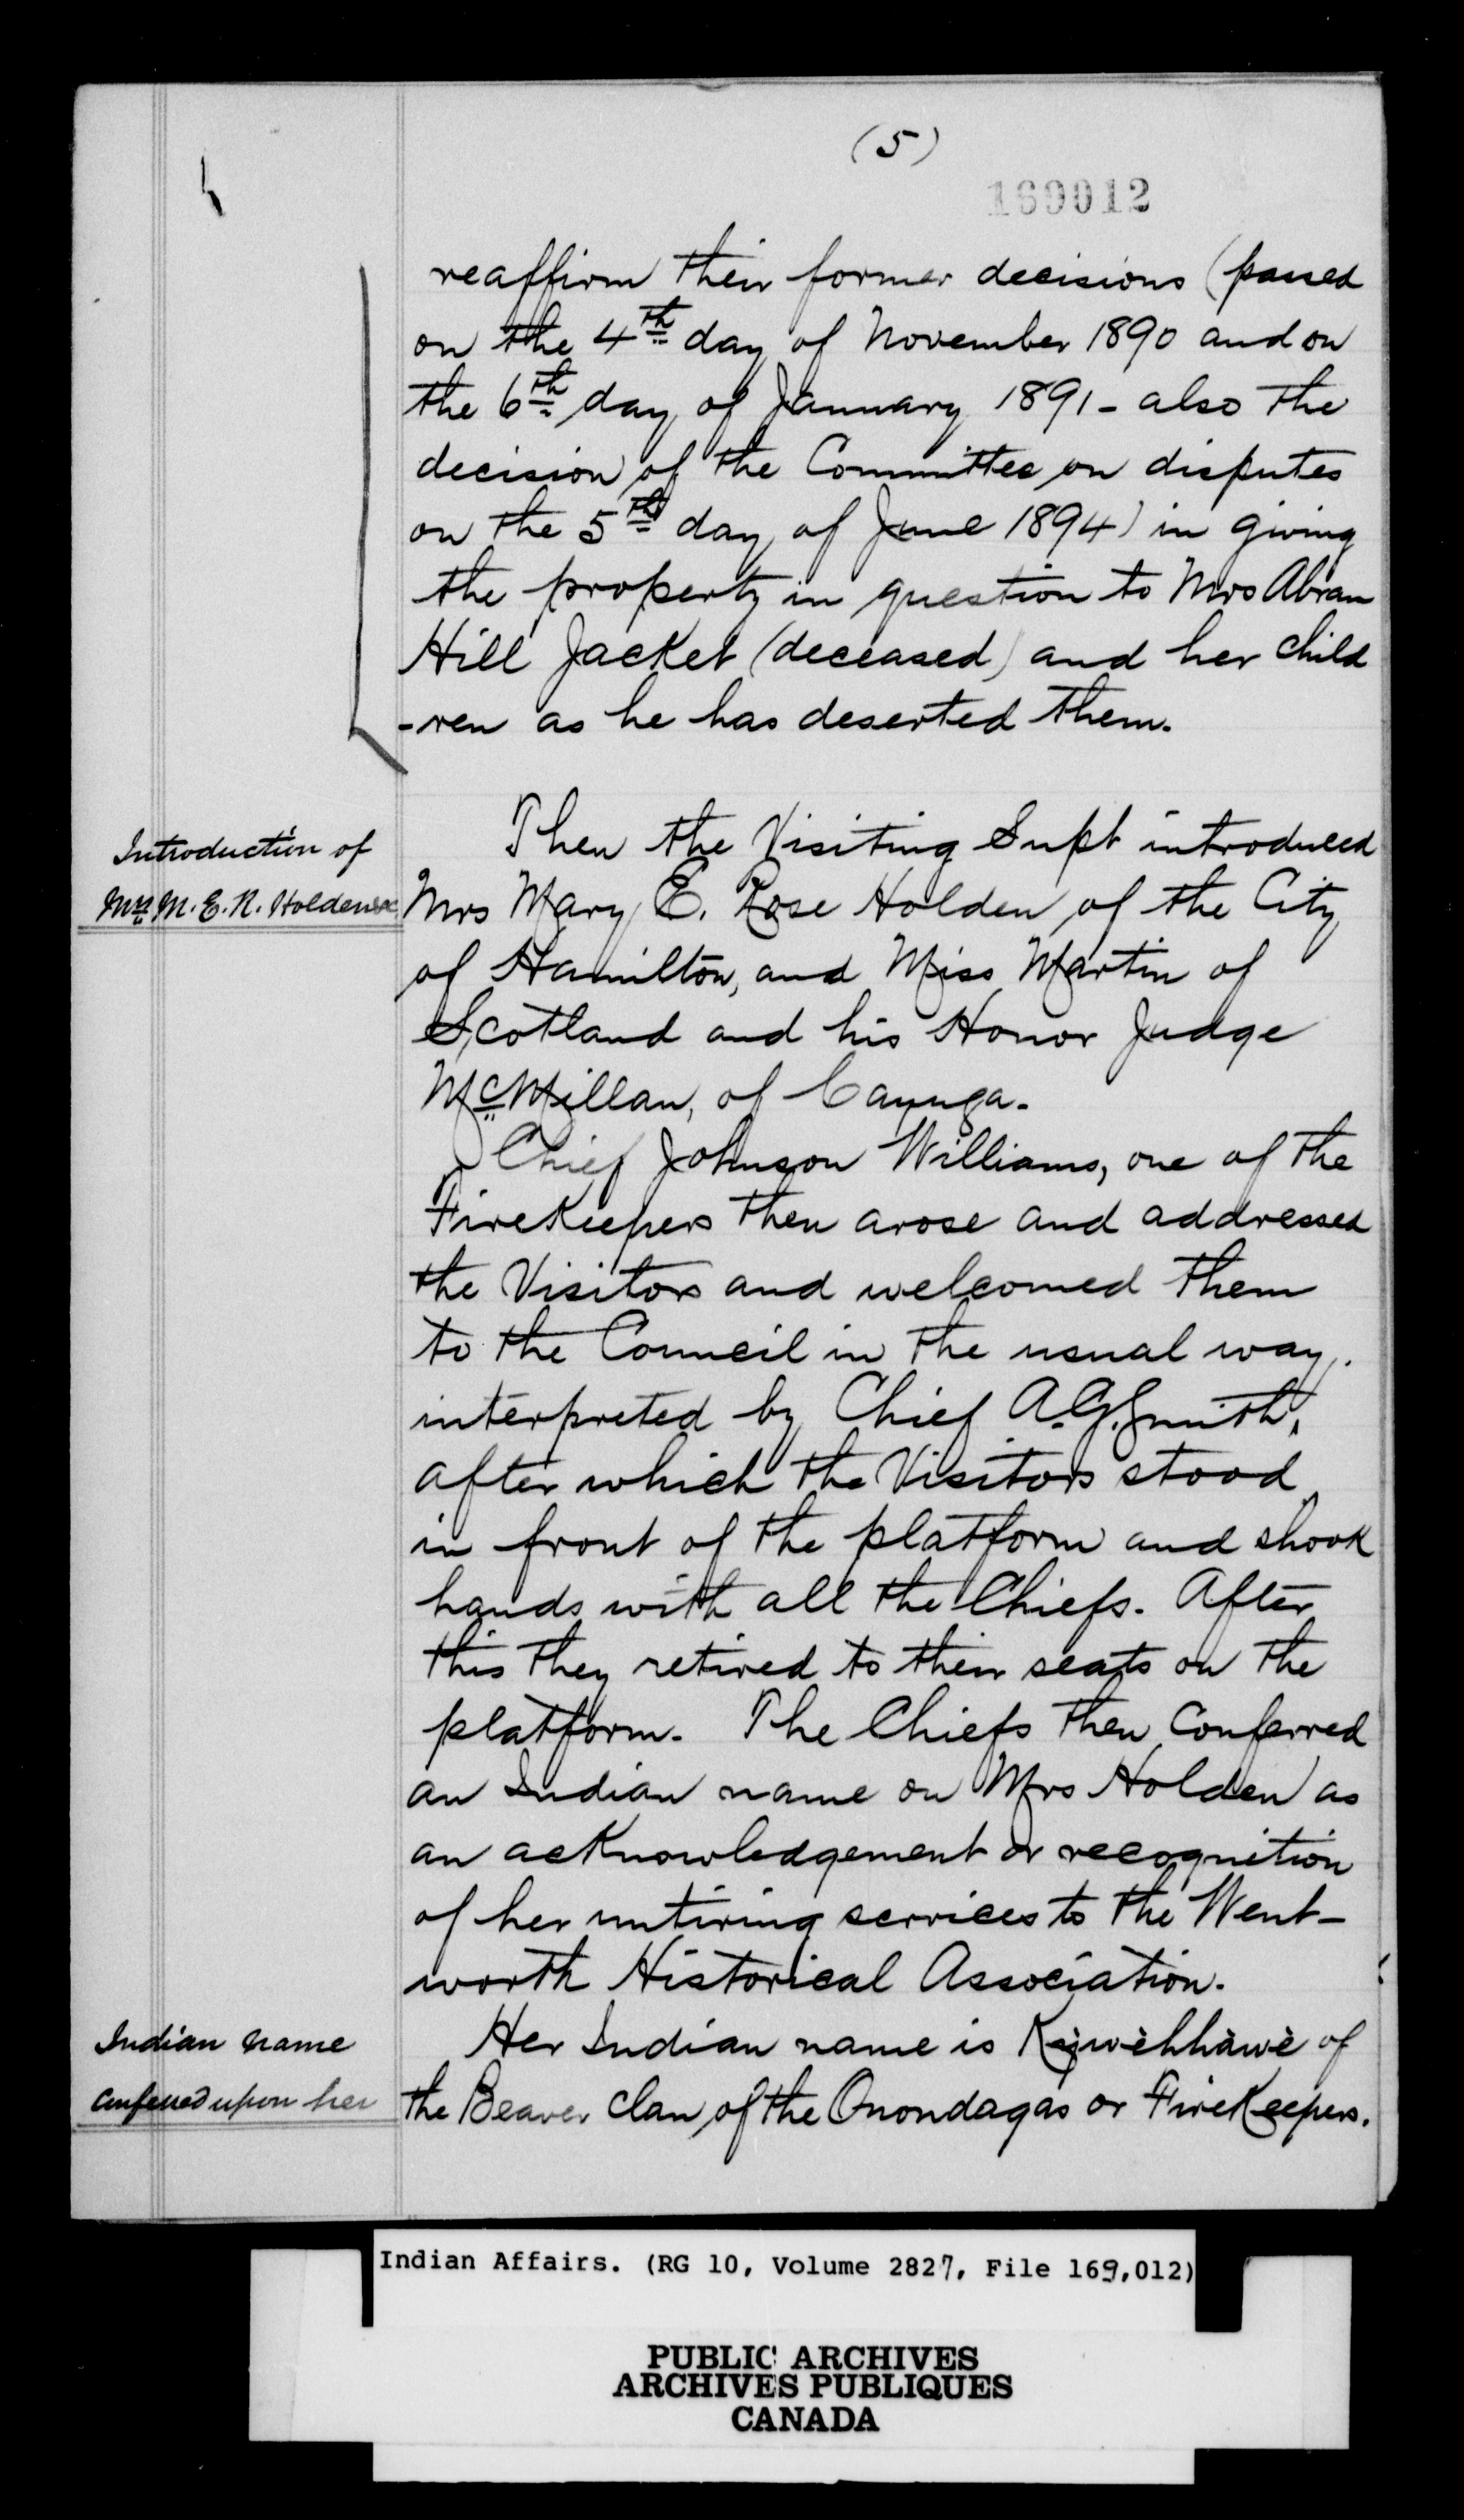 (5)
169012
reaffirm their former decisions (passed
on the 4th day of November 1890 and on
the 6th day of January 1891 - also the
decision of the Committee on disputes
on the 5th day of June 1894) in giving
the property in question to Mrs Abram
Hill Jacket (deceased) and her child
-ren as he has deserted them.
Introduction of
Mrs M. E. R. Holden &c
Then the Visiting Supt introduced
Mrs Mary E. Rose Holden of the City
of Hamilton, and Miss Martin of
Scotland and his Honor Judge
McMillan, of Cayuga.
Chief Johnson Williams, one of the
FireKeepers then arose and addressed
the Visitors and welcomed them
to the Council in the usual way,
interpreted by Chief A.G. Smith,
after which the Visitors stood
in front of the platform and shook
hands with all the Chiefs. After
this they retired to their seats on the
platform. The Chiefs then Conferred
an Indian name on Mrs Holden as
an acKnowledgement or recognition
of her untiring services to the Went-
worth Historical Association.
Indian name
Conferred upon her
Her Indian name is of
the Beaver Clan of the Onondagas or FireKeepers.
Indian Affairs. (RG 10, Volume 2827, File 169,012)
PUBLIC ARCHIVES
ARCHIVES PUBLIQUES
CANADA